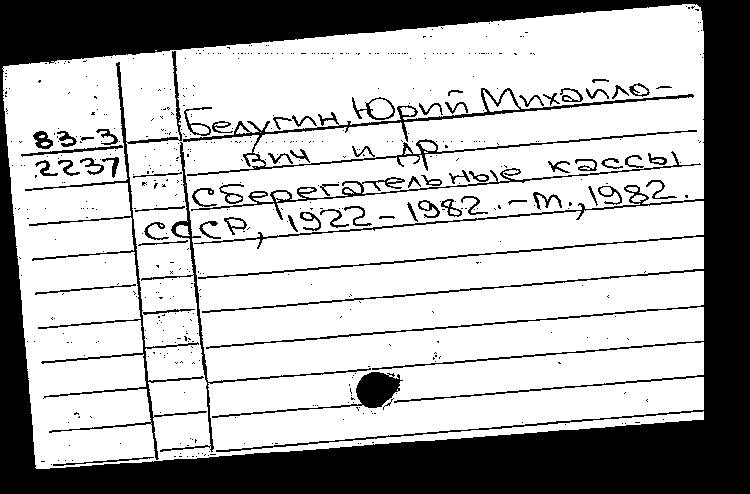 83-3
2237
Белугин, Юрий Михайло-
вич и др.
Сберегательные кассы
СССР, 1922-1982.-М.,1982.